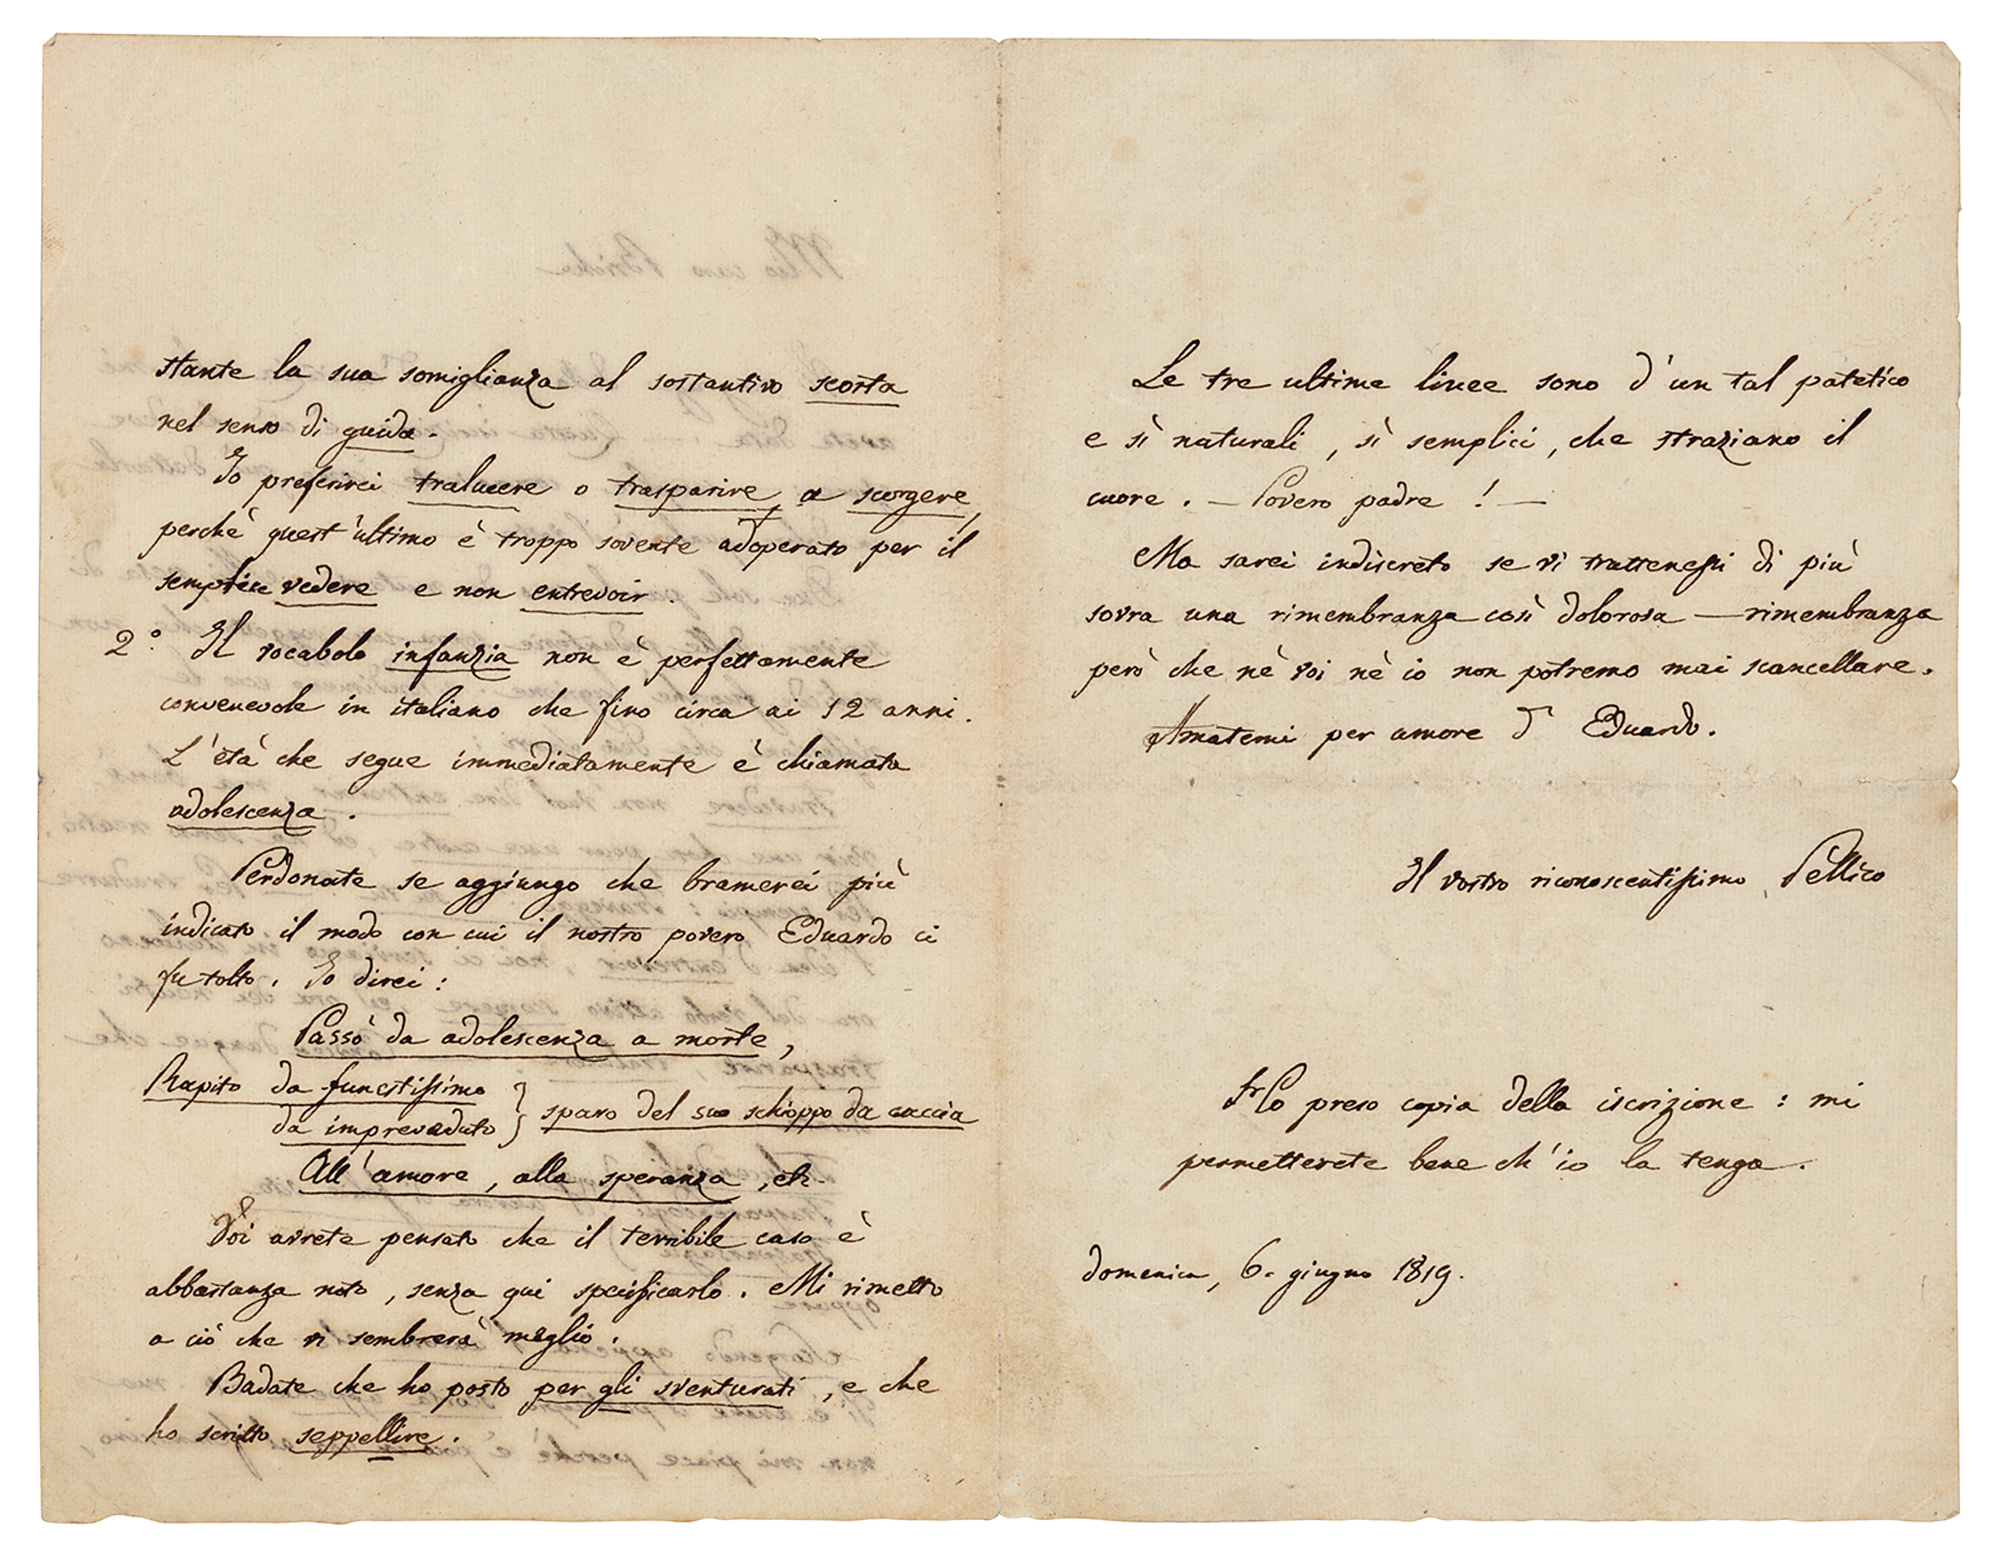 stante la sua somiglianza al sostantivo scorta
nel senso di guida.
Io preferirei tralucere o trasparire a scorgere,
perchè quest'ultimo è troppo sovente adoperato per il
semplice vedere e non entrevoir.
2.° Il vocabolo infanzia non è perfettamente
convenevole in italiano che fino circa ai 12 anni.
L'età che segue immediatamente è chiamata
adolescenza.
Perdonate se aggiungo che bramerei più
indicato il modo con cui il nostro povero Eduardo ci
fu tolto. Io direi:
Passò da adolescenza a morte,
Rapito da funestissimo
da impreveduto } sparo del suo schioppo da caccia
All'amore, alla speranza, etc.
Voi avrete pensato che il terribile caso è
abbastanza noto, senza qui specificarlo. Mi rimetto
a ciò che vi sembrerà meglio.
Badate che ho posto per gli sventurati, e che
ho scritto seppellire.
Le tre ultime linee sono d'un tal patetico
e sì naturali, sì semplici, che straziano il
cuore. — Povero padre! —
Ma sarei indiscreto se vi trattenessi di più
sovra una rimembranza così dolorosa — rimembranza
però che nè voi nè io non potremo mai scancellare.
Amatemi per amore d' Eduardo.
Il vostro riconoscentissimo Pellico
Ho preso copia della iscrizione: mi
permetterete bene ch'io la tenga.
domenica, 6. giugno 1819.